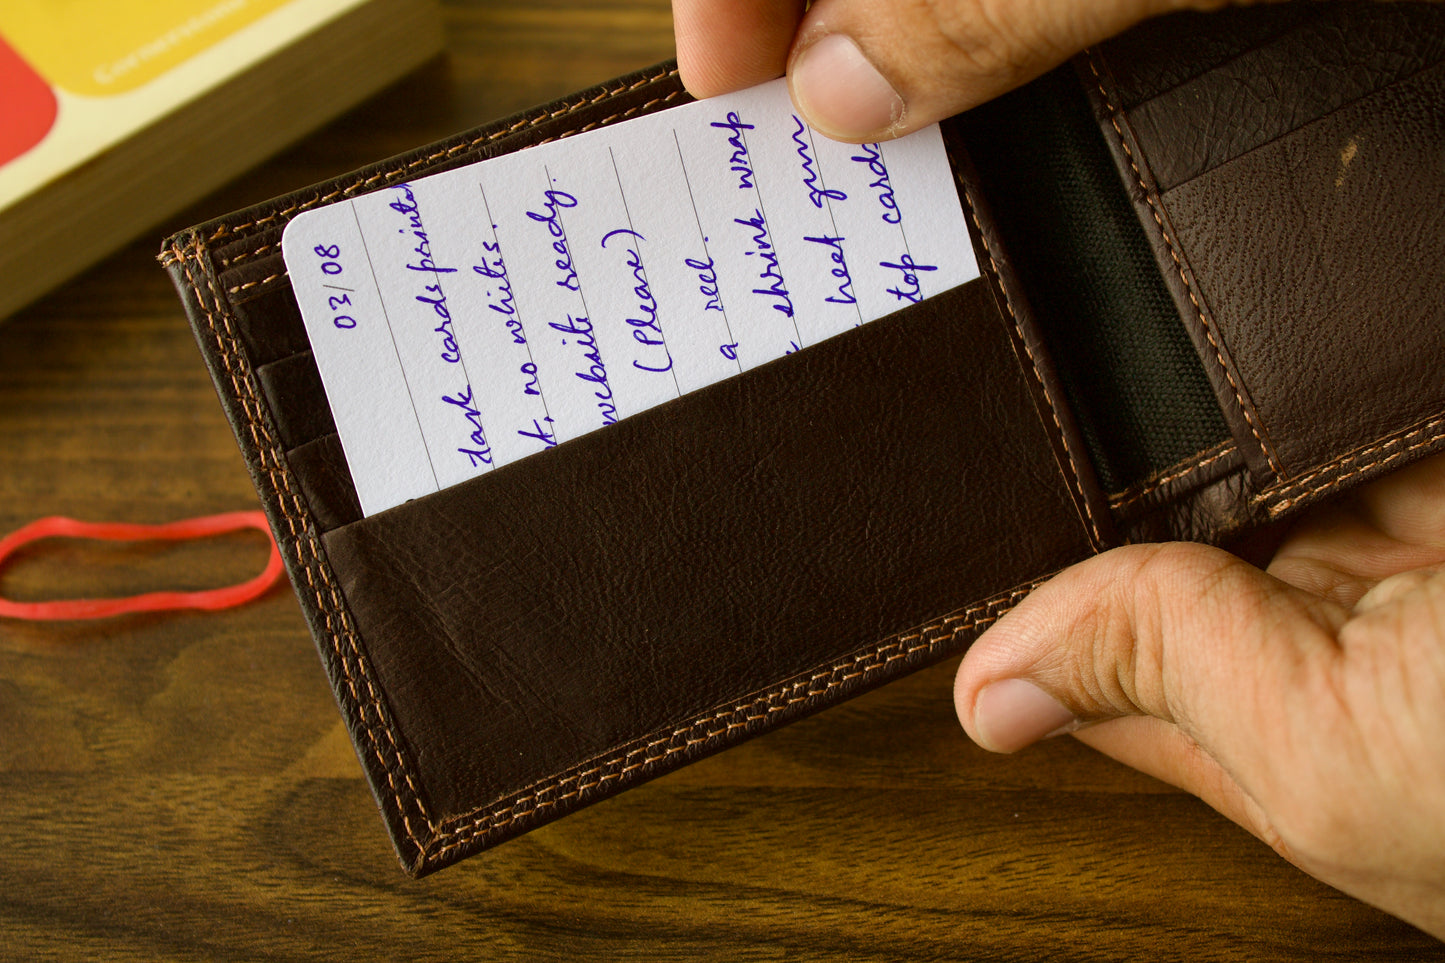 03/08
task cards printed
t, no whites.
website ready.
(Please)
a reel.
shrink wrap
heet gun
top cards